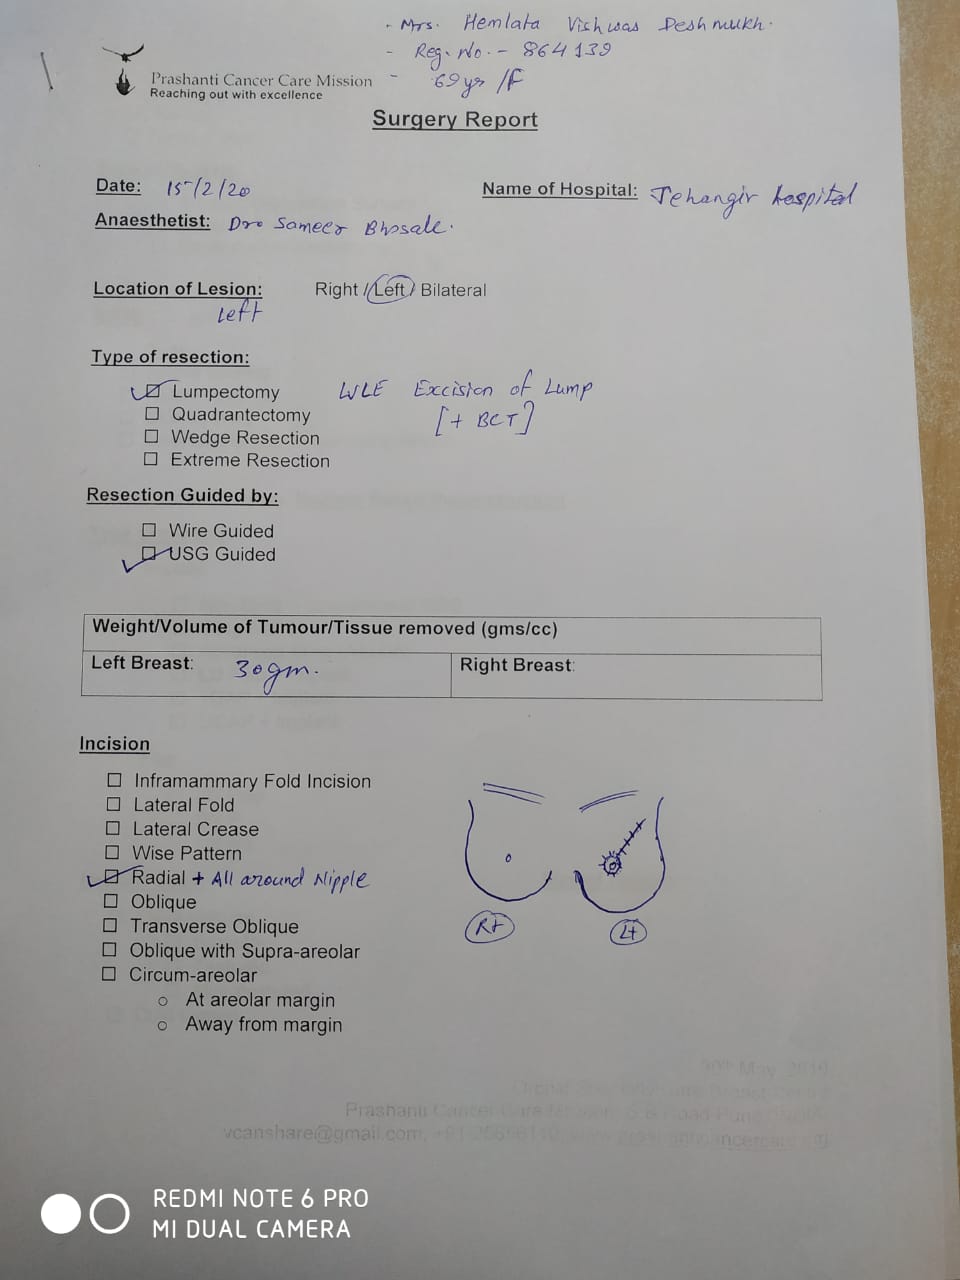 - Mrs. Hemlata Vishwas Deshmukh.
- Reg. No. - 864139
- 69 yrs /F
Prashanti Cancer Care Mission
Reaching out with excellence
Surgery Report
Date: 15/2/20
Name of Hospital: Jehangir hospital
Anaesthetist: Dr. Sameer Bhosale.
Location of Lesion: Right / Left / Bilateral
Left
Type of resection:
Lumpectomy WLE Excision of Lump
Quadrantectomy [+ BCT]
Wedge Resection
Extreme Resection
Resection Guided by:
Wire Guided
USG Guided
Weight/Volume of Tumour/Tissue removed (gms/cc)
Left Breast: 30gm.
Right Breast:
Incision
Inframammary Fold Incision
Lateral Fold
Lateral Crease
Wise Pattern
Radial + All around Nipple
Oblique
Transverse Oblique
Oblique with Supra-areolar
Circum-areolar
At areolar margin
Away from margin
Rt
Lt
May, 2019
Prashanti Cancer Care Mission
vcanshare@gmail.com,
REDMI NOTE 6 PRO
MI DUAL CAMERA